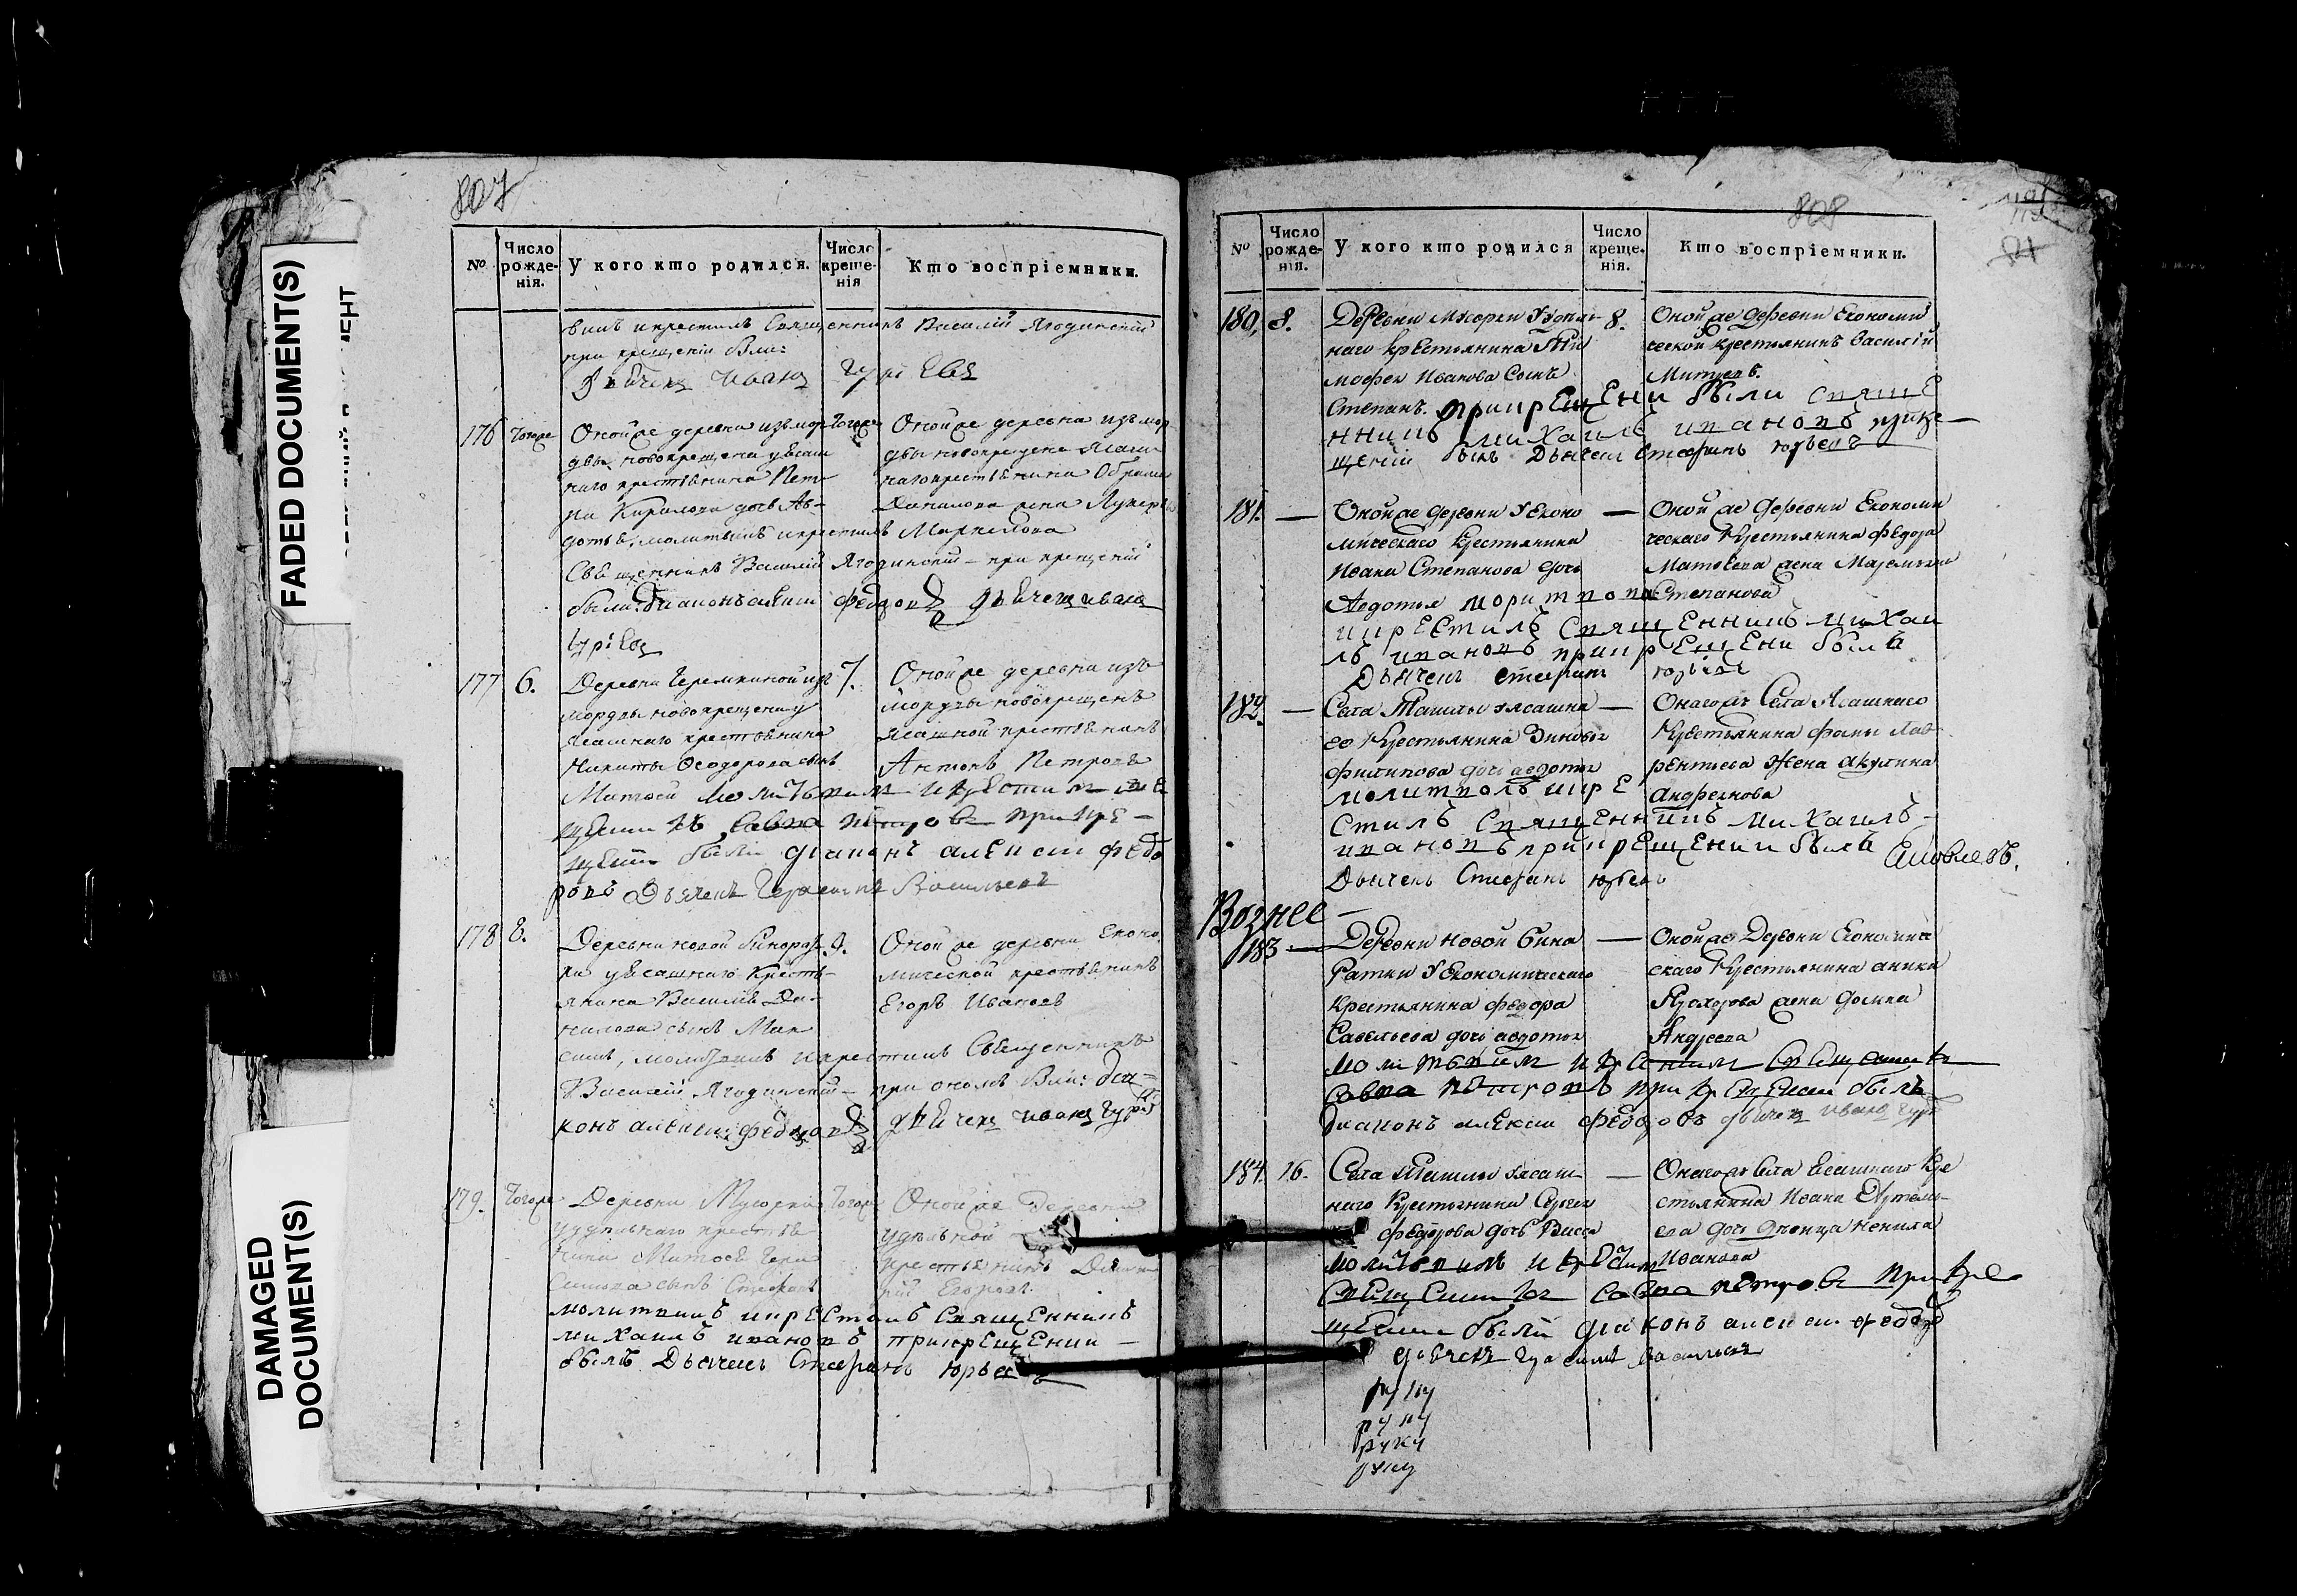 FADED DOCUMENT(S)
DAMAGED
DOCUMENT(S)
807
№
Число рожденія.
У кого кто родился.
Число крещенія
Кто воспріемники.
вилъ и крестилъ Священникъ Василій Ягодинскій
при крещеніи были:
дьячекъ Иванъ Гурьевъ
176
Тогоже
Оной же деревни изъ мор
двы новокрещена уясаш
наго крестьянина Пет
ра Кирилова дочь Ав-
дотья, молитвилъ и крестилъ
Священникъ Василій Ягодинскій – при крещеніи
были: Диаконъ алексѣй федоровъ дьячекъ иванъ
Гурьевъ
Тогоже
Оной же деревни изъ мор
двы новокрещена Ясаш
наго крестьянина
Данилова жена Лукерья
Маркелова
177
6.
Деревни Черемкиной изъ
мордвы новокрещена у
ясашнаго крестьянина
Никиты Феодорова сынъ
Матвей молитвилъ и крестилъ свя
щенникъ Савва петровъ при кре-
щеніи были диаконъ алексей федо
ровъ Дьячекъ Герасимъ Васильевъ
7.
Оной же деревни изъ
мордвы новокрещенъ
ясашной крестьянинъ
Антонъ Петровъ
178
8.
Деревни новой Бинарад
ки уясашнаго кресть-
янина Василья Да-
нилова сынъ Мак
симъ, молитвилъ и крестилъ Священникъ
Василій Ягодинскій – при ономъ были: диа-
конъ алексей федоровъ дьячекъ иванъ Гурьевъ
9.
Оной же деревни Еконо
мической крестьянинъ
Егоръ Ивановъ
179.
Тогоже
Деревни Мусорки
уудельнаго крестья
нина Матвея Гера
симова сынъ Стефанъ
молитвилъ и крестилъ священникъ
михаилъ ивановъ при крещении –
былъ Дьячекъ Стефанъ Юрьевъ
Тогоже
Оной же деревни
удѣльной
крестьянинъ
Егоровъ.
808
№
Число рожденія.
У кого кто родился
Число крещенія.
Кто воспріемники.
180,
8.
Деревни Мусорки Уудель
наго крестьянина Ти
мофея Иванова Сынъ
Степанъ. при крещени были свяще
нникъ михаилъ ивановъ при кре–
щеніи былъ Дьячекъ Стефанъ юрьевъ
8.
Оной же деревни Економи
ческой крестьянинъ Василій
181.
—
Оной же деревни Уеконо
мическаго Крестьянина
Ивана Степанова дочь
Авдотья моритвова
и крестилъ священникъ михаи
лъ ивановъ при крещени былъ
Дьячекъ стефанъ юрьевъ
—
Оной же деревни Економи
ческаго Крестьянина федора
Матвеева жена Маремьяна
Степанова
182.
—
Села Ташлы уясашна
го Крестьянина Зиновья
филипова дочь авдотья
молитволъ и кре
стилъ священникъ михаилъ
ивановъ при крещении былъ
Дьячекъ Стефанъ юрьевъ
—
Онагожъ Села Ясашнаго
Крестьянина фомы Лав
рентьева Жена акулина
Андреянова
Яковлевъ.
Вознес–
183
—
Деревни Новой Бина
ратки Уекономическаго
Крестьянина федора
Савельева дочь авдотья
молитвилъ и крестилъ священникъ
Савва петровъ при крещеніи былъ
диаконъ алексеи федоровъ дьячекъ иванъ Гурье
—
Оной же Деревни Економиче
скаго Крестьянина аники
Прохорова жена Домна
Андреева
184.
16.
Села Ташлы уясаш
наго Крестьянина Сергея
федорова дочь Васса
молитвилъ и крестилъ
Священникъ Савва петровъ при кре
щеніи были диаконъ алексеи федоро
дьячекъ Герасимъ Васильевъ
—
Онагожъ Села Ясашнаго Кре
стьянина Ивана Артемь
ева дочь девица Ненила
Иванова
руку
руку
руку
руку